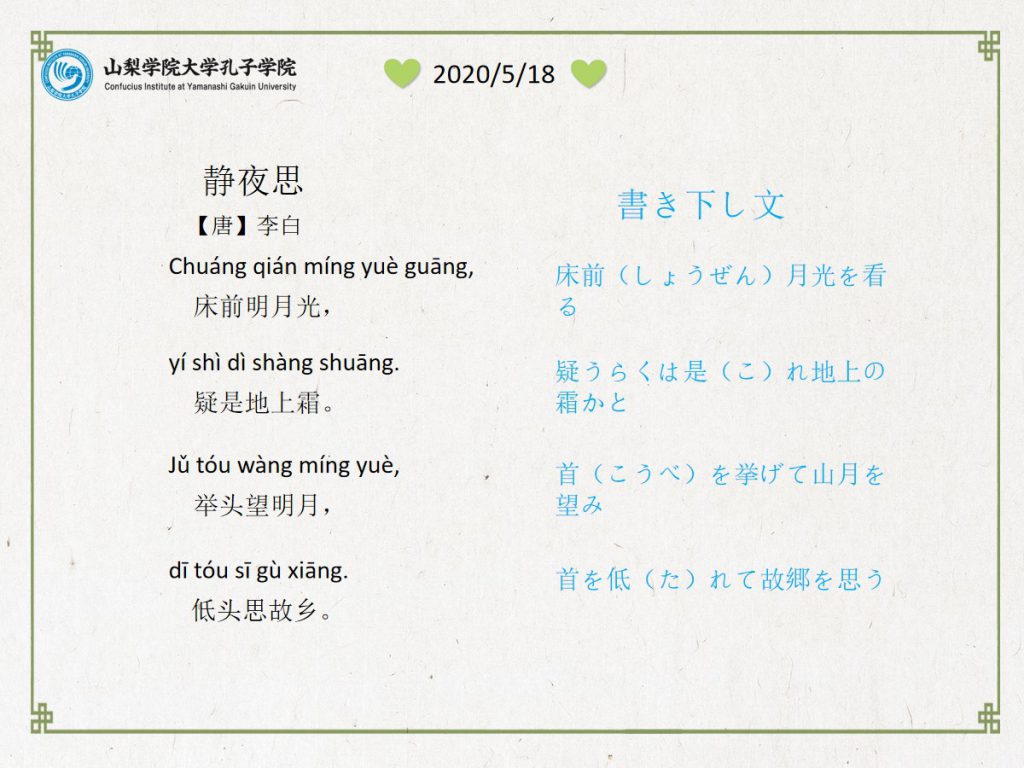 山梨学院大学孔子学院
Confucius Institute at Yamanashi Gakuin University
2020/5/18
静夜思
【唐】李白
Chuáng qián míng yuè guāng,
床前明月光，
yí shì dì shàng shuāng.
疑是地上霜。
Jǔ tóu wàng míng yuè,
举头望明月，
dī tóu sī gù xiāng.
低头思故乡。
書き下し文
床前（しょうぜん）月光を看
る
疑うらくは是（こ）れ地上の
霜かと
首（こうべ）を挙げて山月を
望み
首を低（た）れて故郷を思う